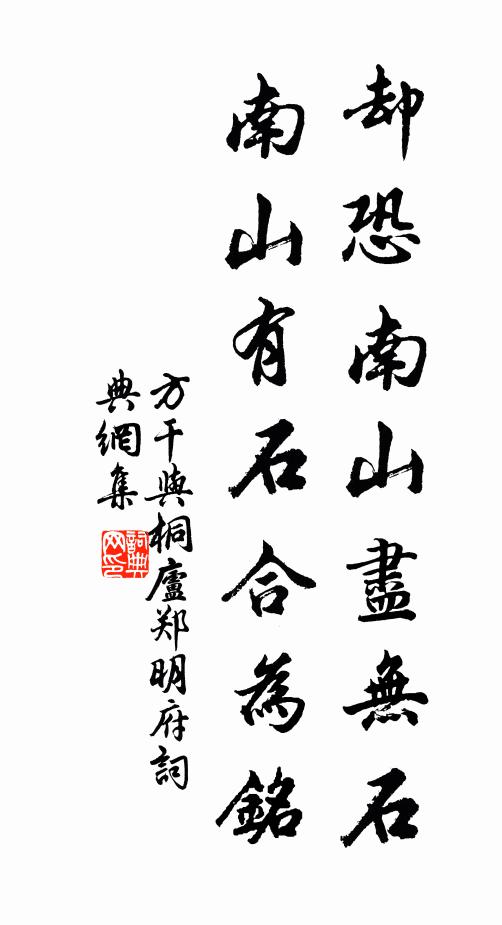 却恐南山盡無石
南山有石合為銘
方干與桐廬郑明府詞
典網集
詞典
网印